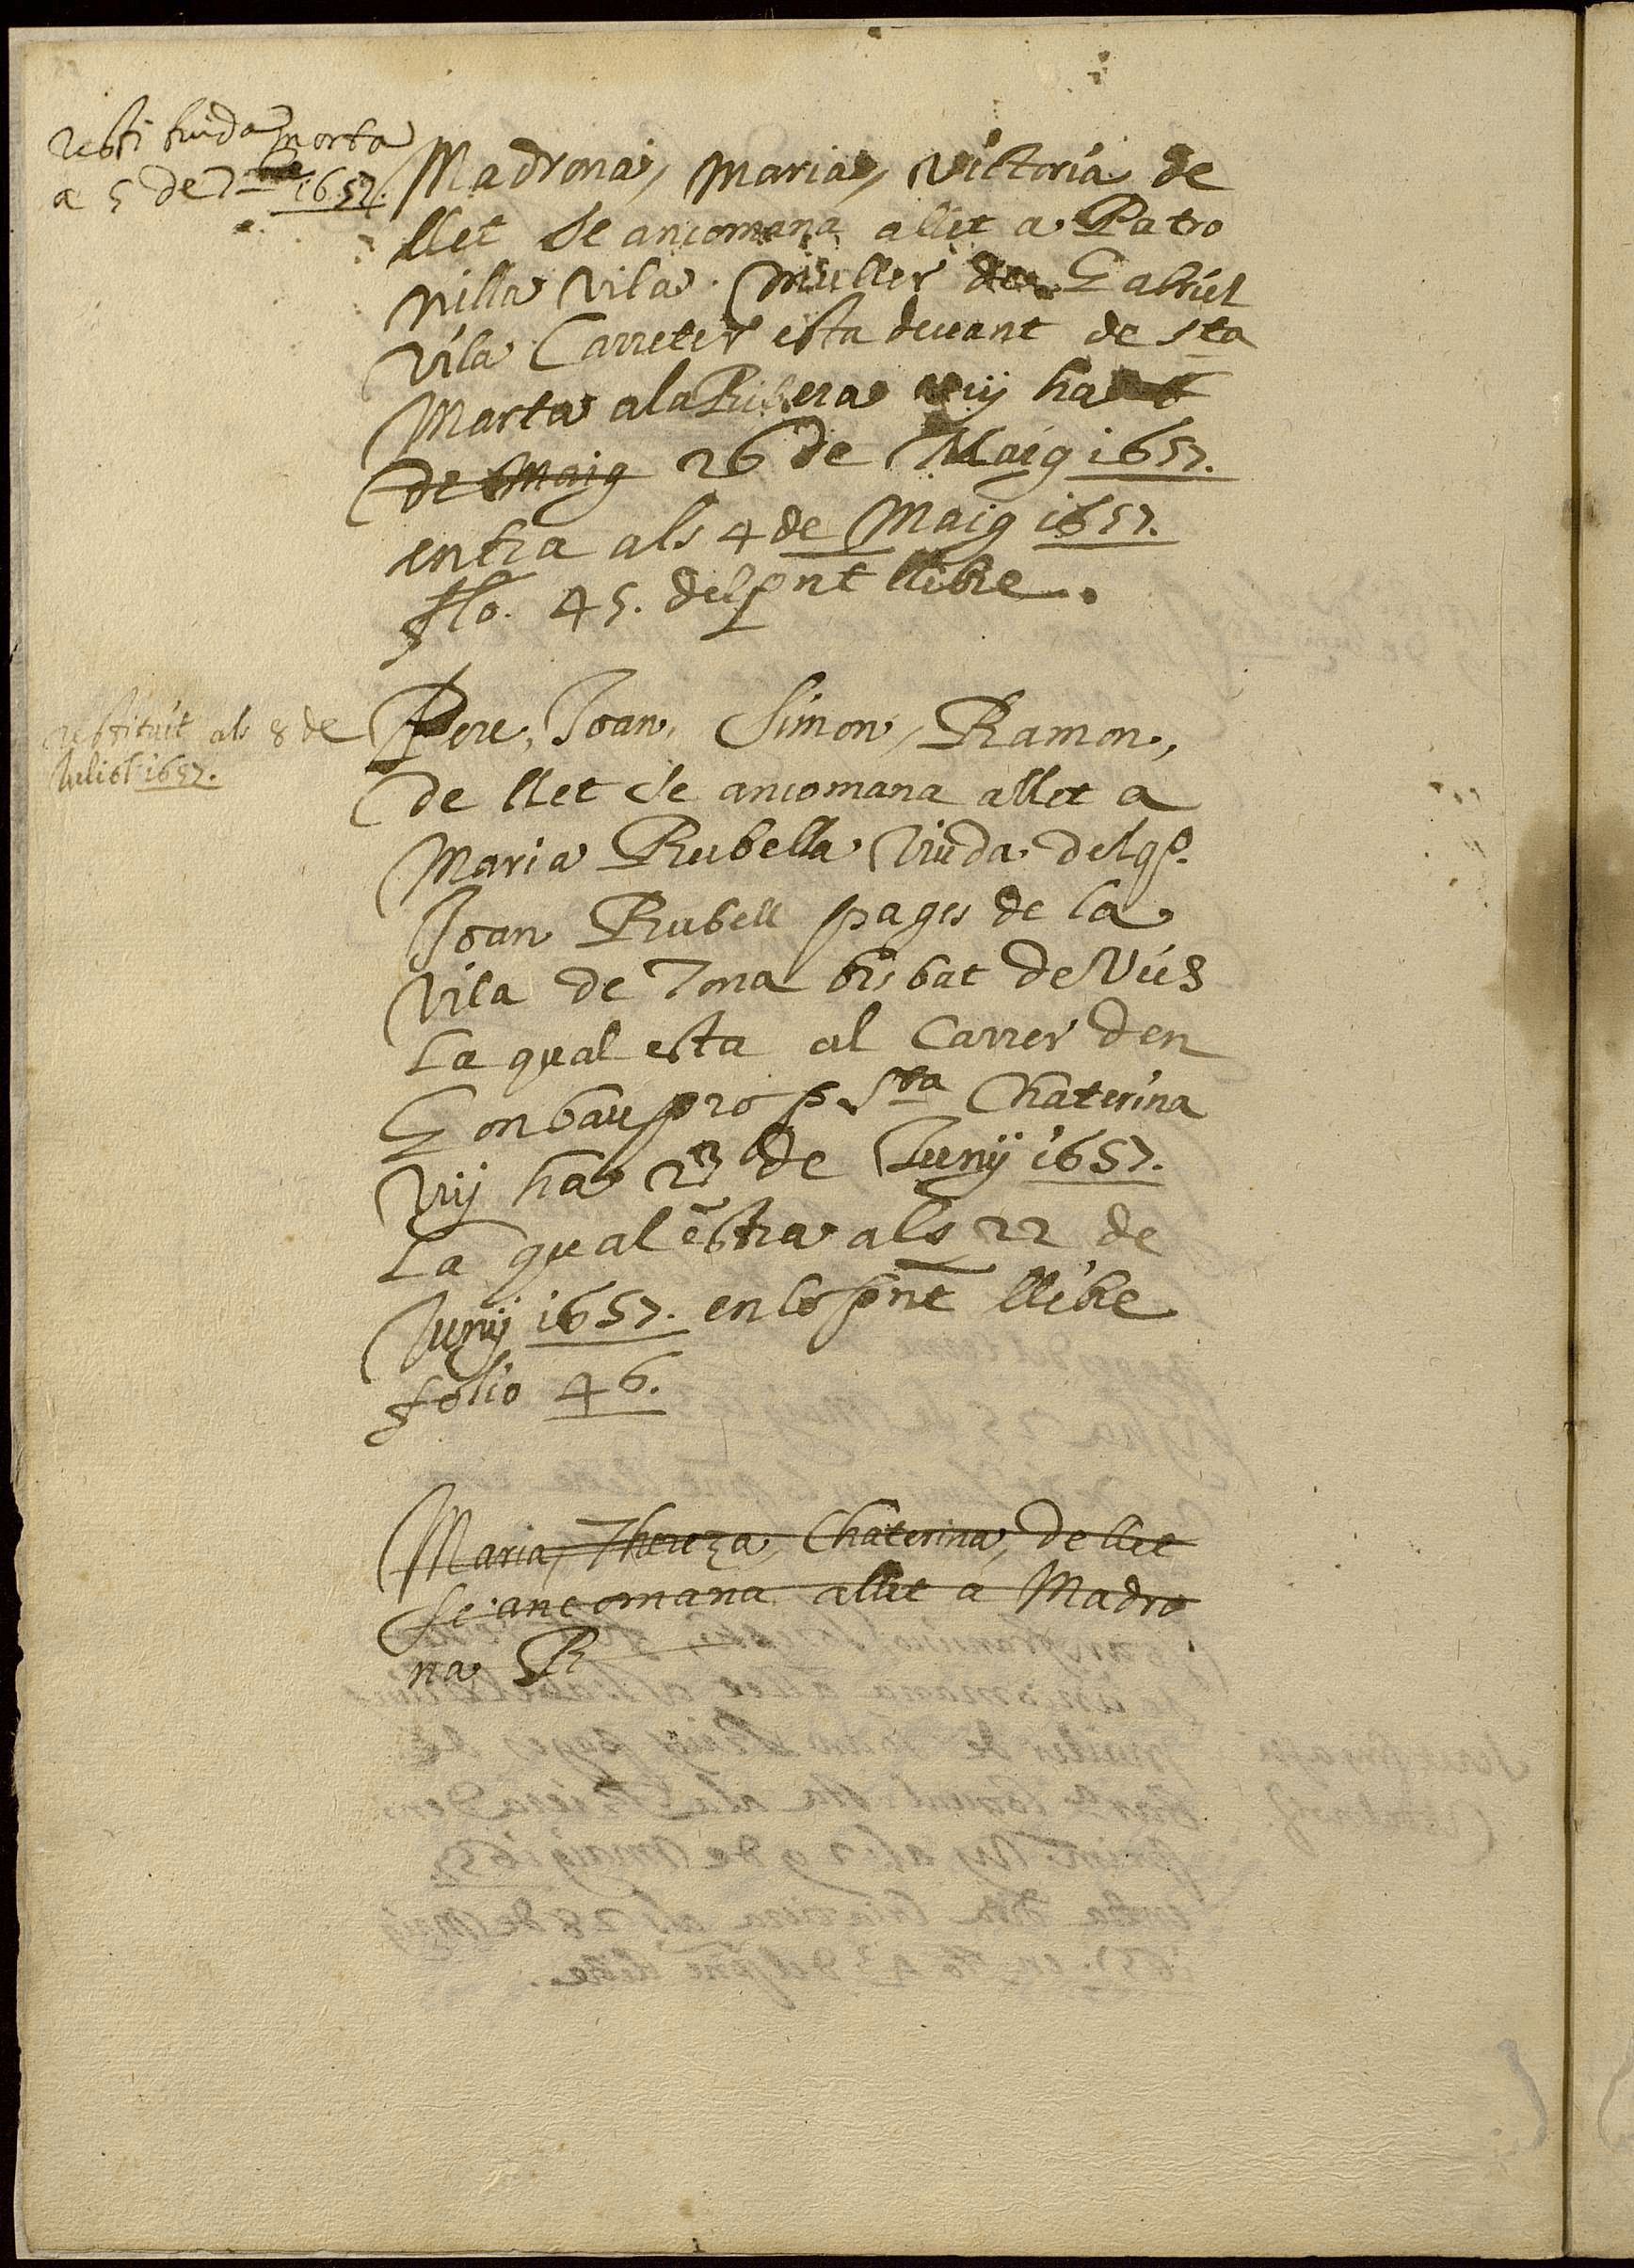 restituida morta
a 5 de 7bre 1657.
Madrona, Maria, Victoria de
llet se ancomana allet a Patro
nilla Vila muller de Gabriel
Vila Carreter esta devant de Sta
Marta a la Ribera vuy ha
de Maig 26 de Maig 1657.
entra als 4 de Maig 1657.
flo. 45. del pnt llibre.
restituit als 8 de
Juliol 1657.
Pere, Joan, Simon, Ramon,
de llet se ancomana allet a
Maria Rubella Viuda del qº.
Joan Rubell pages de la
Vila de Tona bisbat de Vich
La qual esta al Carrer den
Gonbau prop Sta Chaterina
Vuy ha 23 de Juny 1657.
La qual entra als 22 de
Juny 1657. en lo pnt llibre
folio 46.
Maria, Thereza, Chaterina, de llet
se ancomana allet a Madro
na R